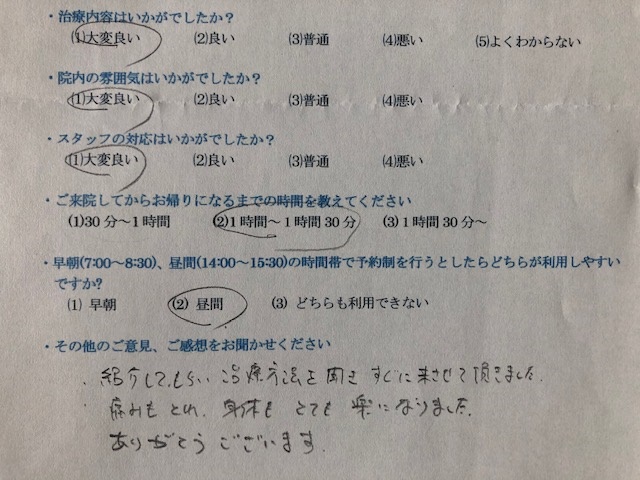 ・治療内容はいかがでしたか？
(1)大変良い (2)良い (3)普通 (4)悪い (5)よくわからない
・院内の雰囲気はいかがでしたか？
(1)大変良い (2)良い (3)普通 (4)悪い
・スタッフの対応はいかがでしたか？
(1)大変良い (2)良い (3)普通 (4)悪い
・ご来院してからお帰りになるまでの時間を教えてください
(1)30分～1時間 (2)1時間～1時間30分 (3)1時間30分～
・早朝(7:00～8:30)、昼間(14:00～15:30)の時間帯で予約制を行うとしたらどちらが利用しやすい
ですか？
(1) 早朝 (2) 昼間 (3) どちらも利用できない
・その他のご意見、ご感想をお聞かせください
・紹介してもらい治療方法を聞きすぐに来させて頂きました。
・痛みもとれ、身体もとても楽になりました。
ありがとうございます。